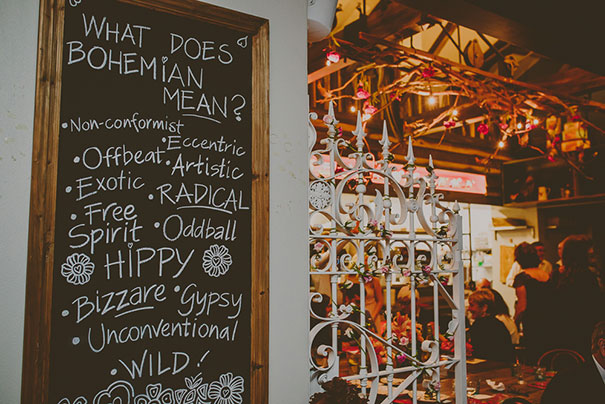 WHAT DOES
BOHEMIAN
MEAN?
• Non-conformist
• Eccentric
• Offbeat
• Artistic
• Exotic
• RADICAL
• Free
Spirit
• Oddball
• HIPPY
• Bizzare
• Gypsy
• Unconventional
• WILD!